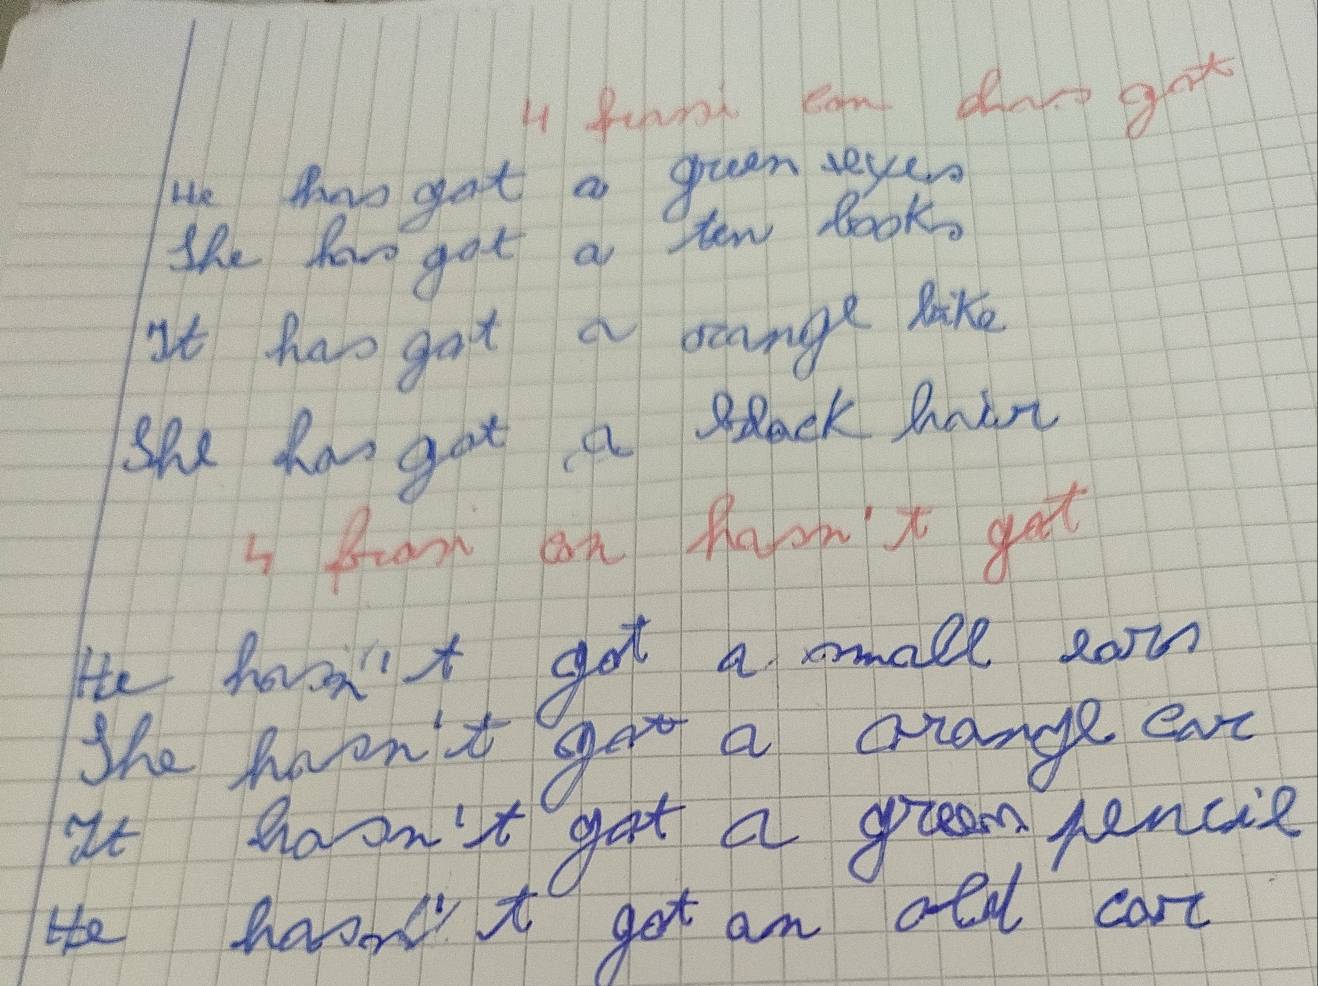 4 frasi con has got
He has got a green eyes
She has got a ten books
It has got a orange bike
She has got a black hair
4 frasi con hasn't got
He hasn't got a small ears
She hasn't got a orange car
It hasn't got a green pencil
He hasn't got an old car